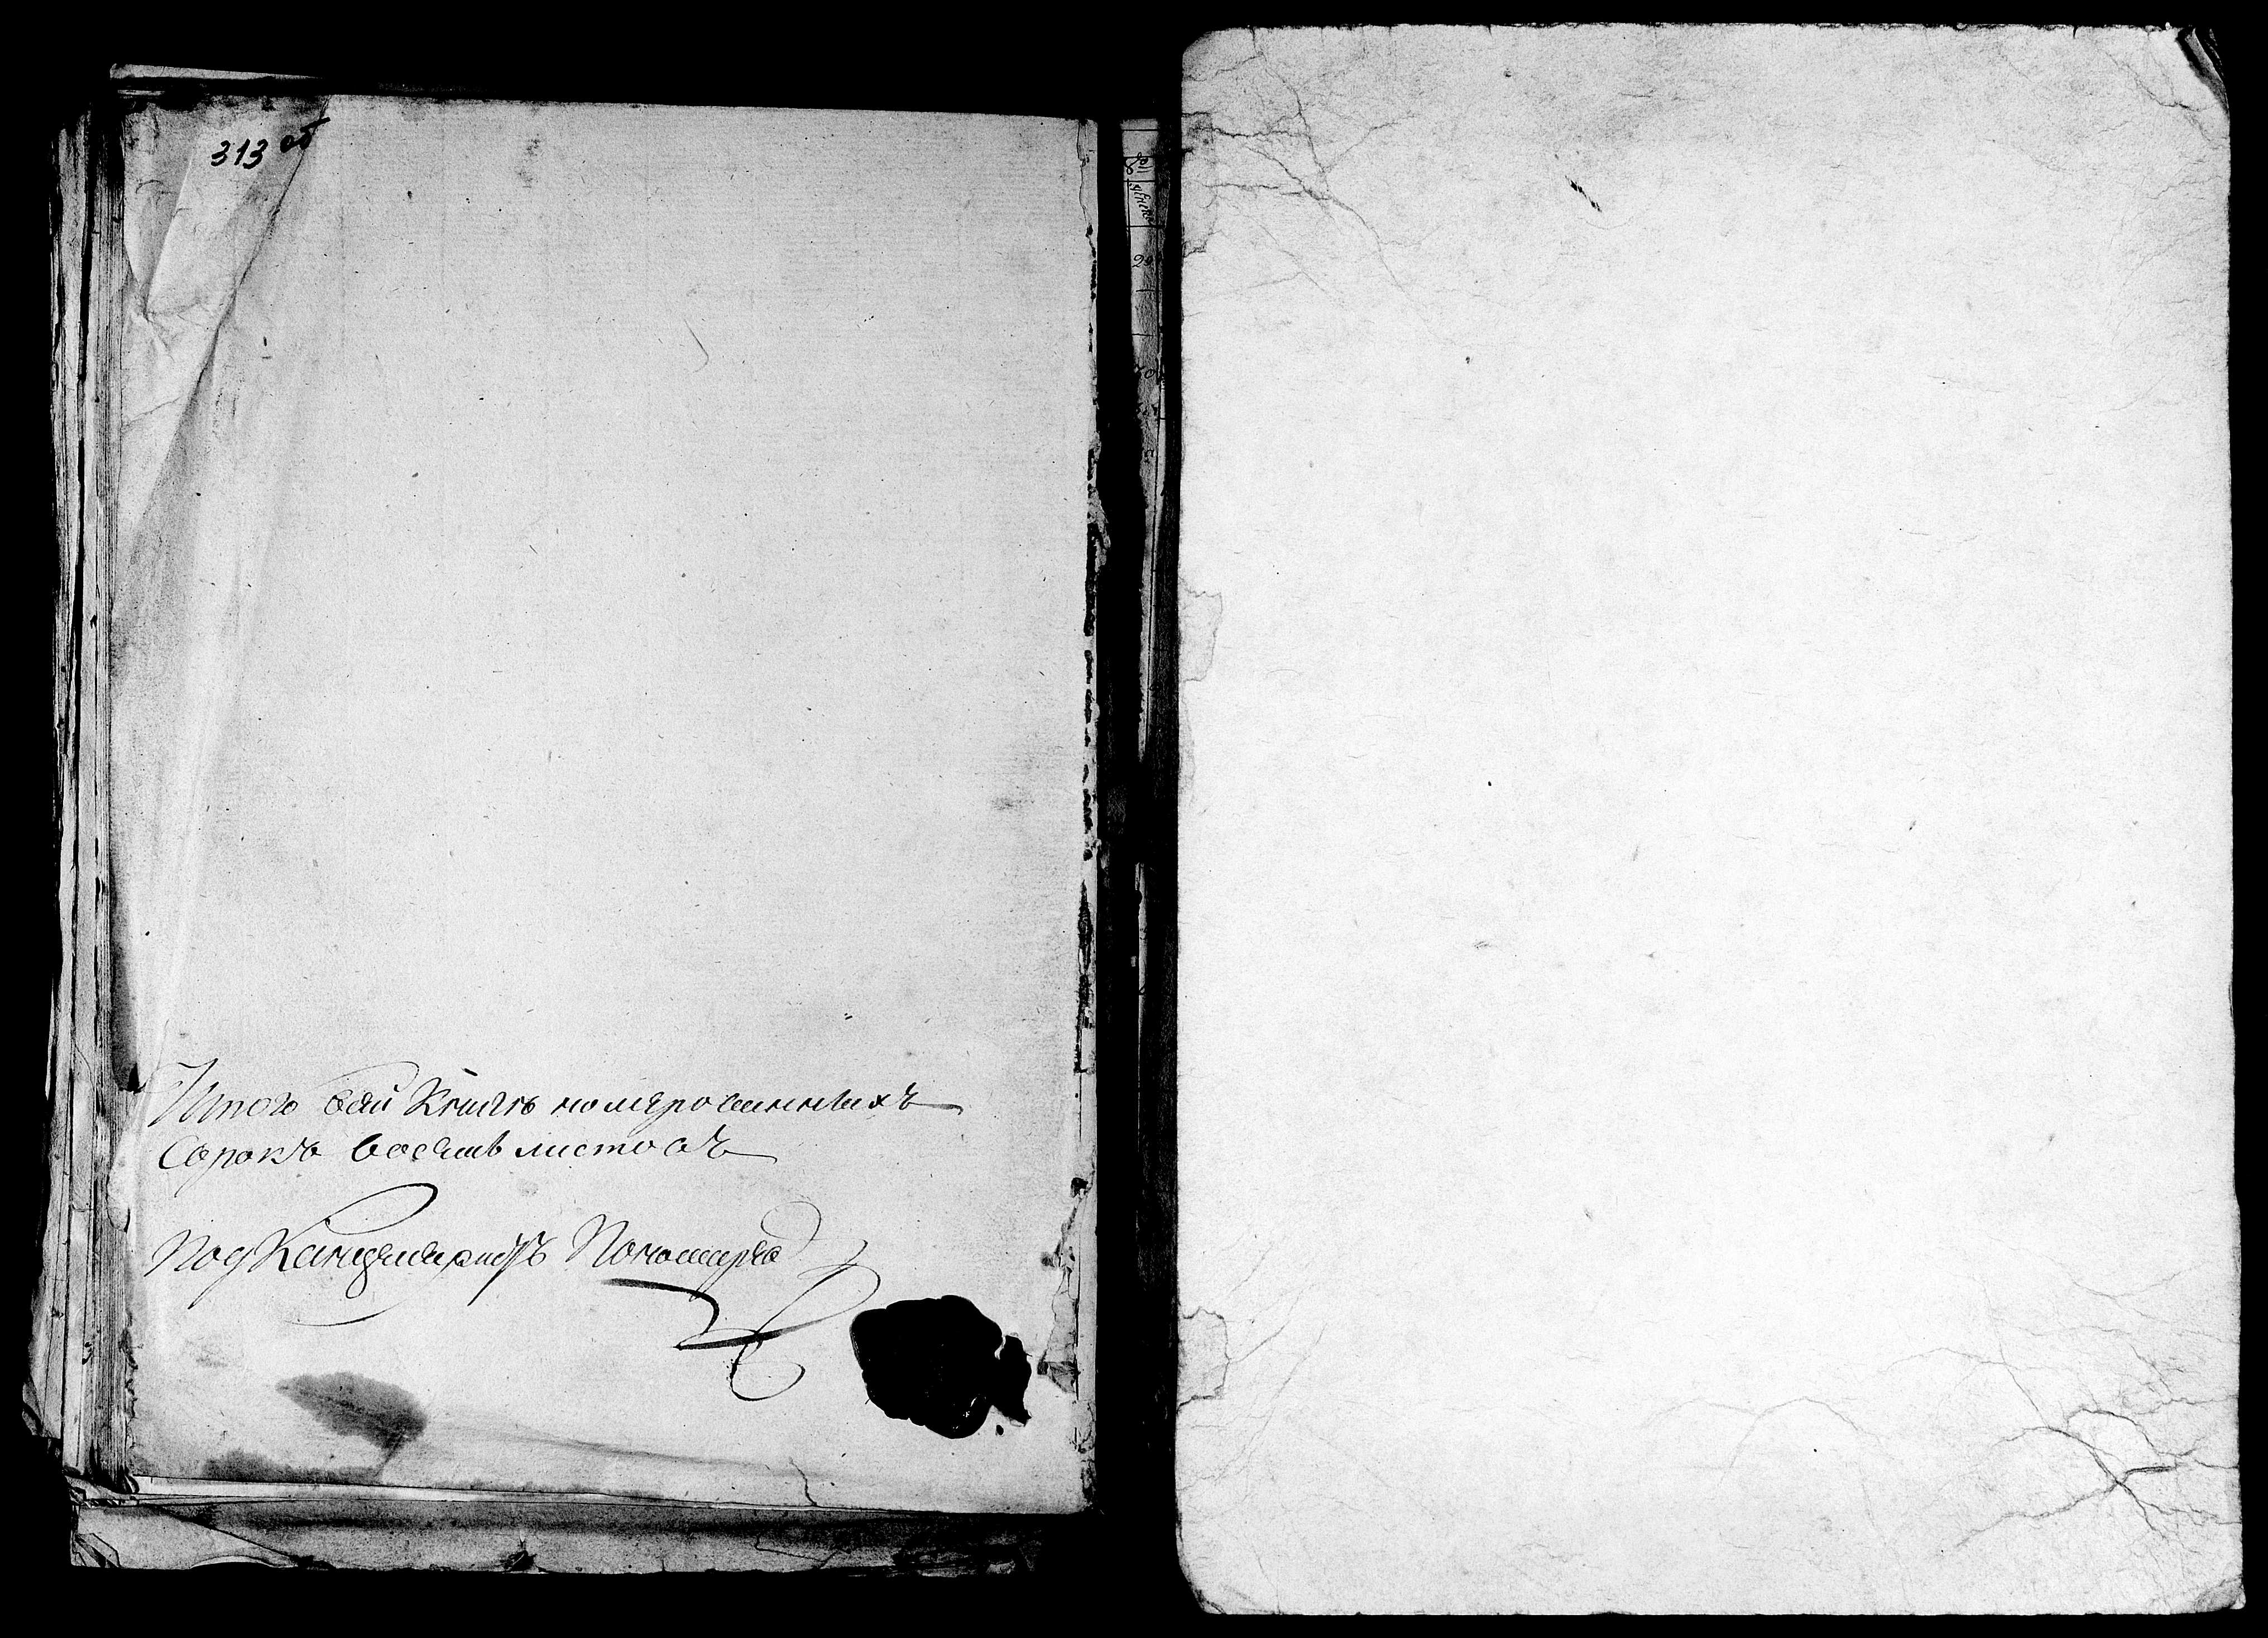 313 об
Итого всей Книгѣ номерованныхъ
Сорокъ восемь листовъ
Подканцеляристъ Пономарев